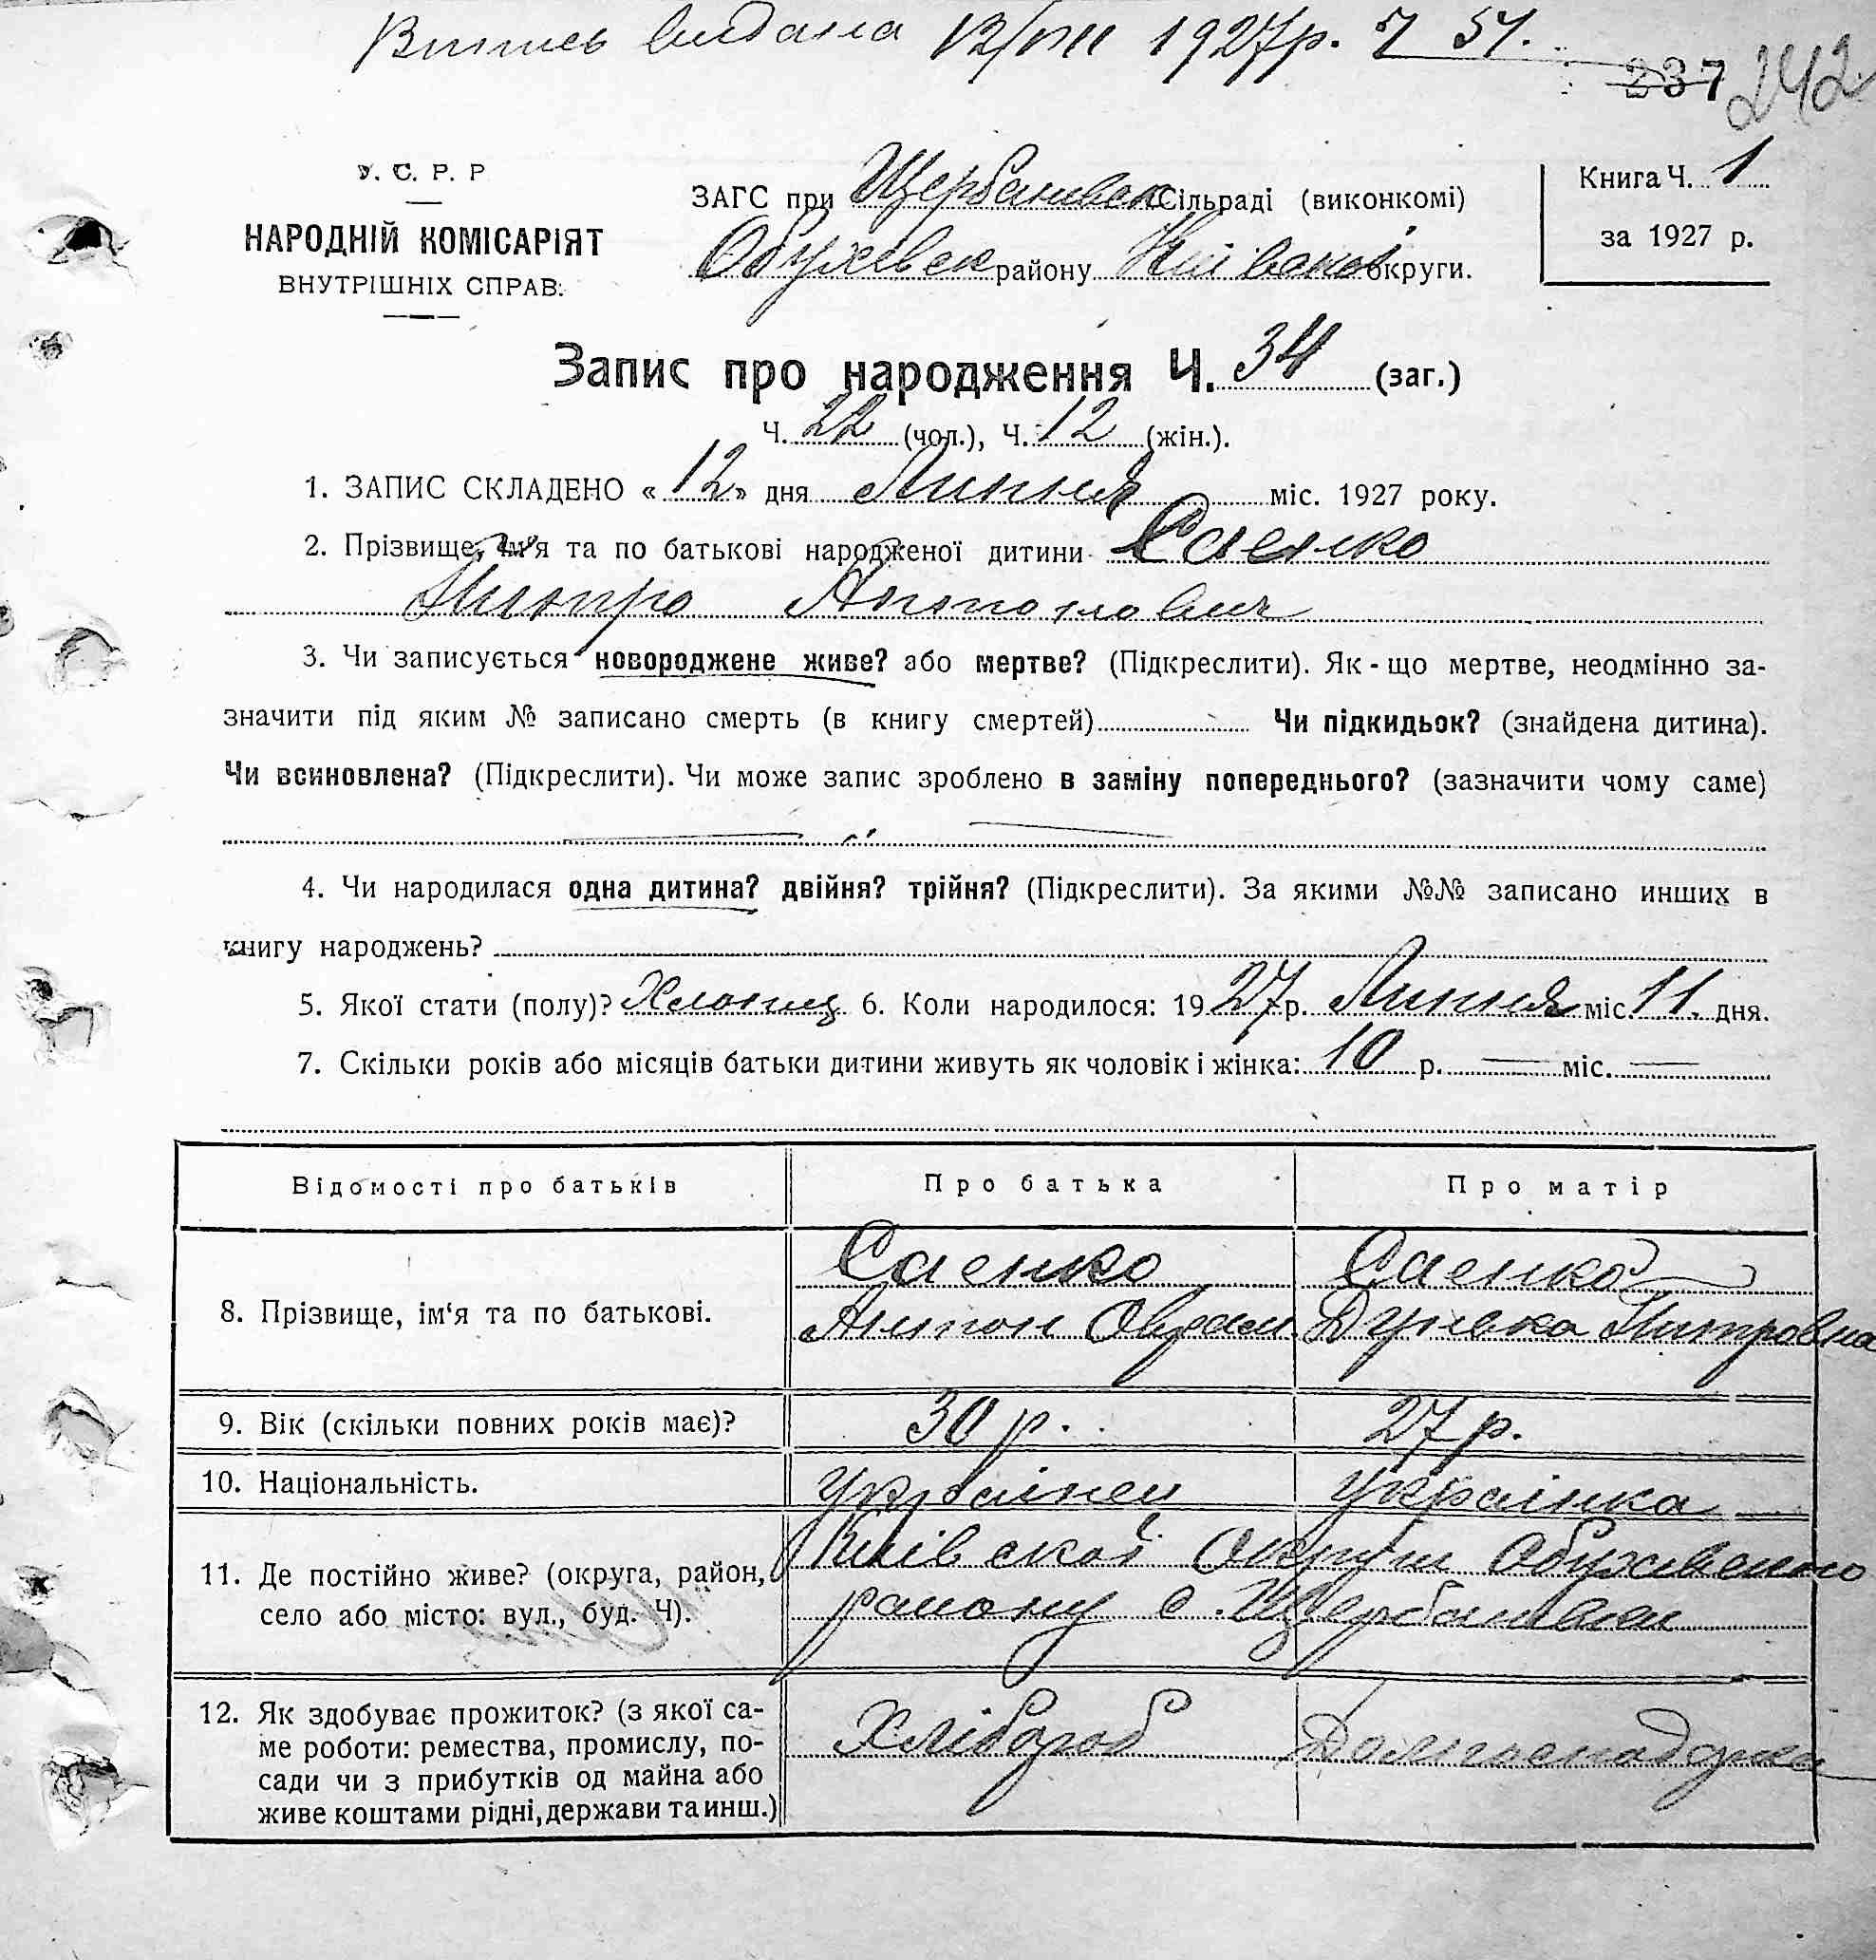 Витись видана 12/VII 1927р. Ч 54.
237 242
У. С. Р. Р
НАРОДНІЙ КОМІСАРІЯТ
ВНУТРІШНІХ СПРАВ.
ЗАГС при Щербанівск Сільраді (виконкомі)
Обухівск району Київської округи.
Книга Ч. 1
за 1927 р.
Запис про народження Ч. 34 (заг.)
Ч. 22 (чол.), Ч. 12 (жін.).
1. ЗАПИС СКЛАДЕНО «12» дня Липня міс. 1927 року.
2. Прізвище, ім'я та по батькові народженої дитини Саенко
Митро Антонович
3. Чи записується новороджене живе? або мертве? (Підкреслити). Як-що мертве, неодмінно за-
значити під яким № записано смерть (в книгу смертей) Чи підкидьок? (знайдена дитина).
Чи всиновлена? (Підкреслити). Чи може запис зроблено в заміну попереднього? (зазначити чому саме)
4. Чи народилася одна дитина? двійня? трійня? (Підкреслити). За якими №№ записано инших в
книгу народжень?
5. Якої стати (полу)? Хлопец 6. Коли народилося: 1927 р. Липня міс. 11. дня.
7. Скільки років або місяців батьки дитини живуть як чоловік і жінка: 10 р. — міс. —
Відомості про батьків Про батька Про матір
8. Прізвище, ім'я та по батькові.
Саенко
Антон Оврам.
Саенко
Дунька Митровна
9. Вік (скільки повних років має)? 30 р. 27 р.
10. Національність. Українец Українка
11. Де постійно живе? (округа, район,
село або місто: вул., буд. Ч).
Київскої Округи Обухівского
району с. Щербанівки
12. Як здобуває прожиток? (з якої са-
ме роботи: ремества, промислу, по-
сади чи з прибутків од майна або
живе коштами рідні, держави та инш.)
Хлібороб